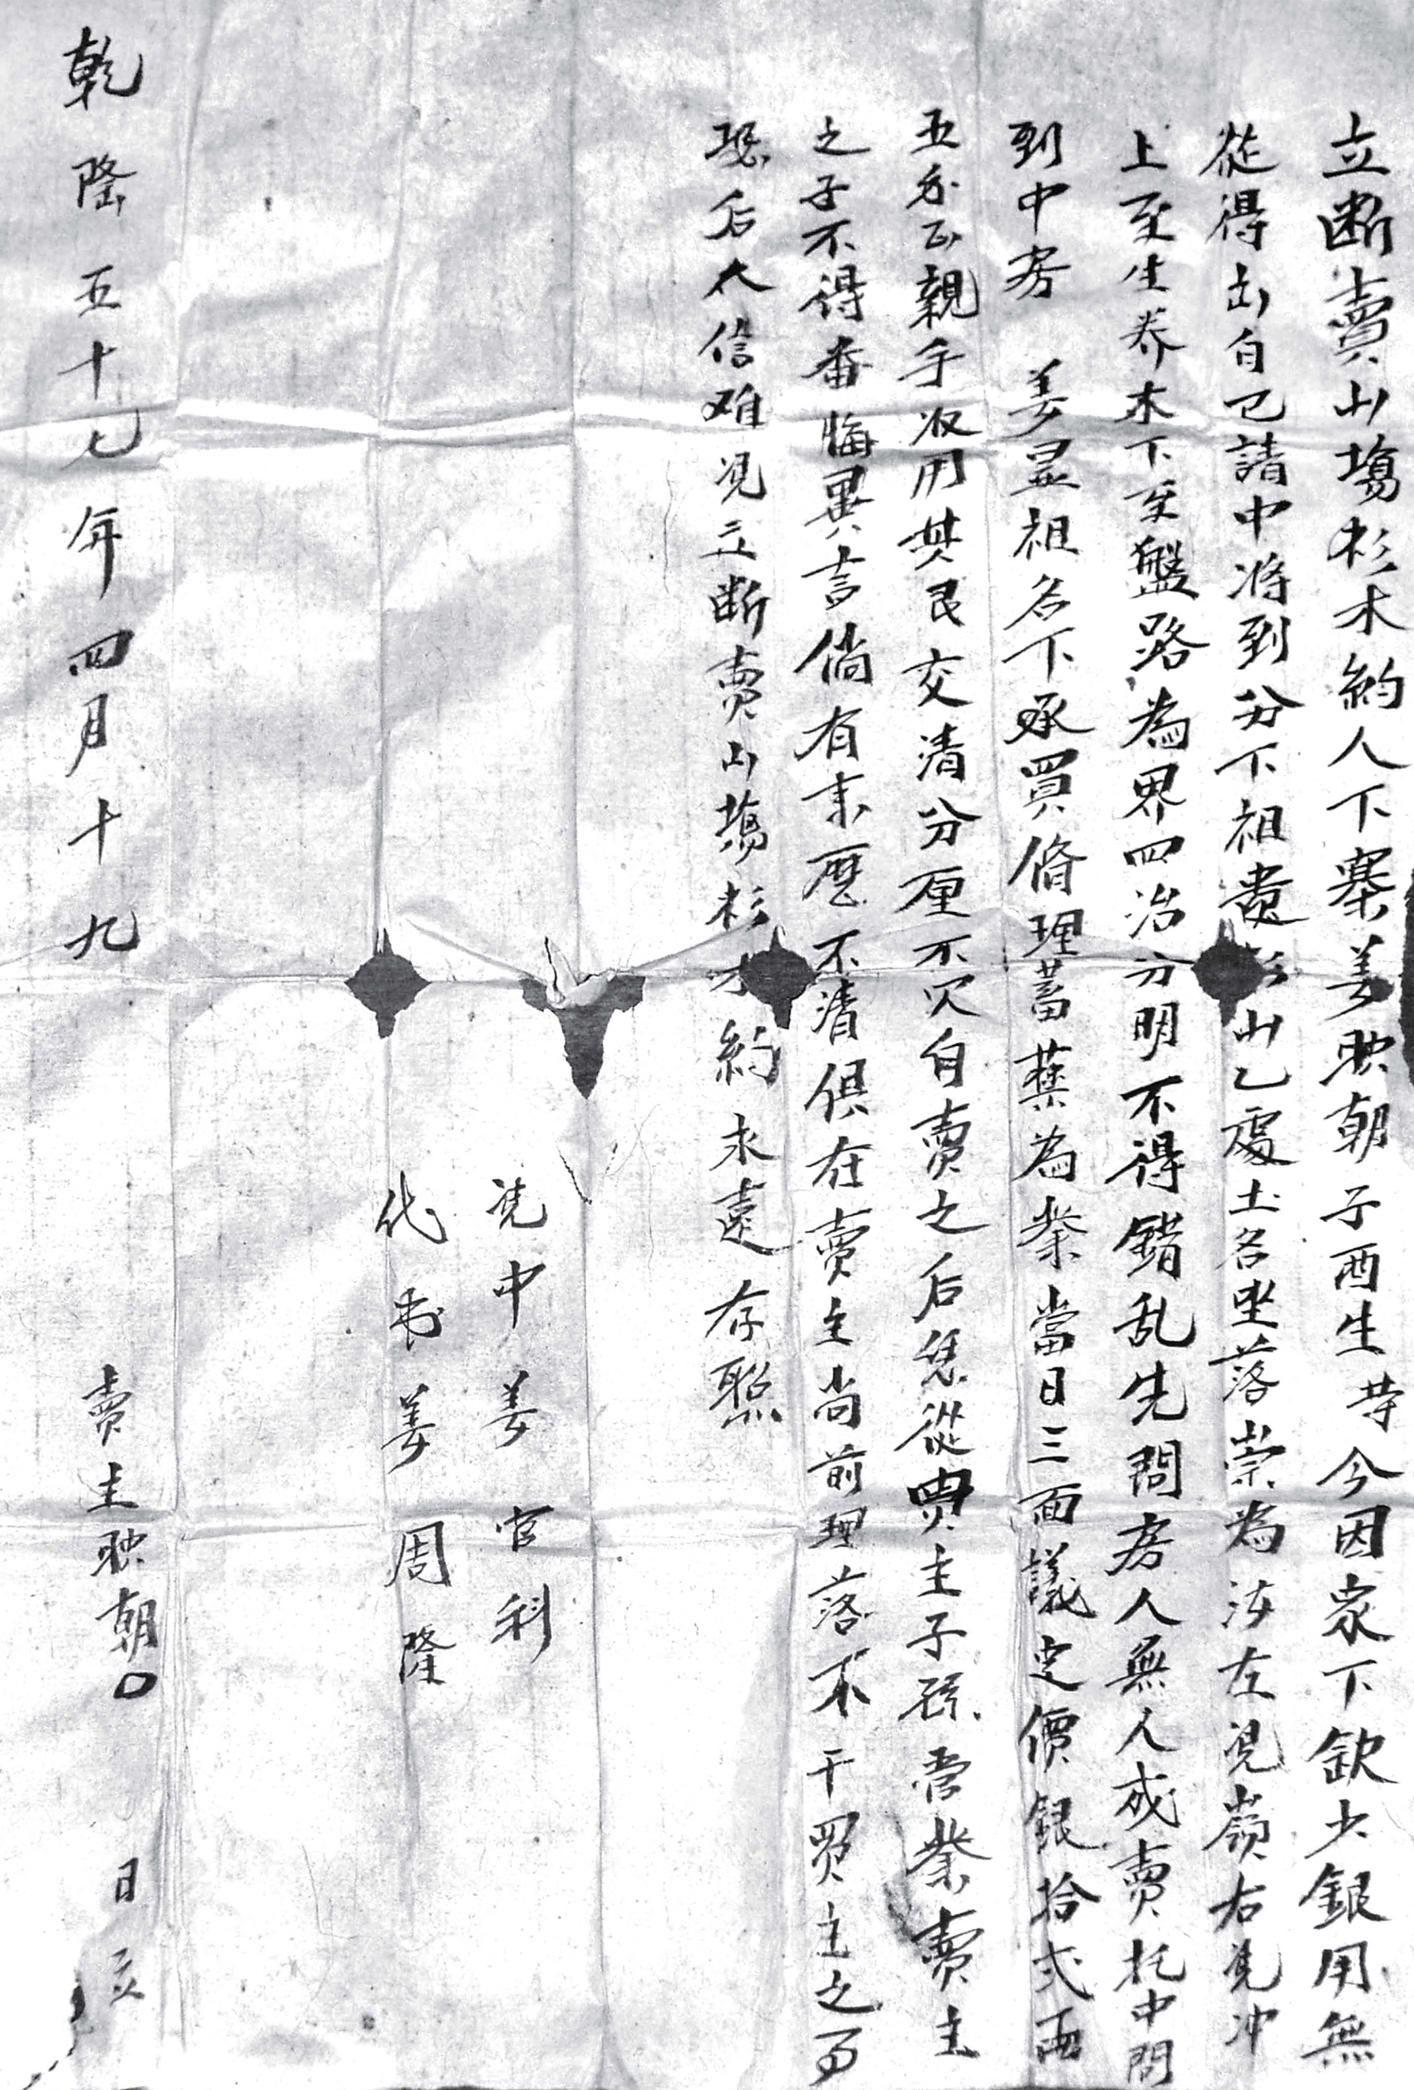 立断賣山塲杉木約人下寨姜映朝子酉生苛今因家下欽少銀用無
從得出自己請中将到分下祖遺杉山乙處土名坐落崇為沟左凴嶺右凴冲
上至生养木下至盤路為界四治分明不得錯乱先問房人無人成賣托中問
到中房 姜显祖名下承買脩理蓄蓁為業當日三面議定價銀拾弍両
五分正親手收用其艮交清分厘不欠自賣之后凭從買主子孫管業賣主
之子不得番悔異言倘有来歷不清俱在賣主尚前理落不干買主之事
恐后人信难凴立断賣山塲杉木約永遠存照
凴中姜官科
代书姜周隆
賣主映朝〇
乾隆五十七年四月十九 日立